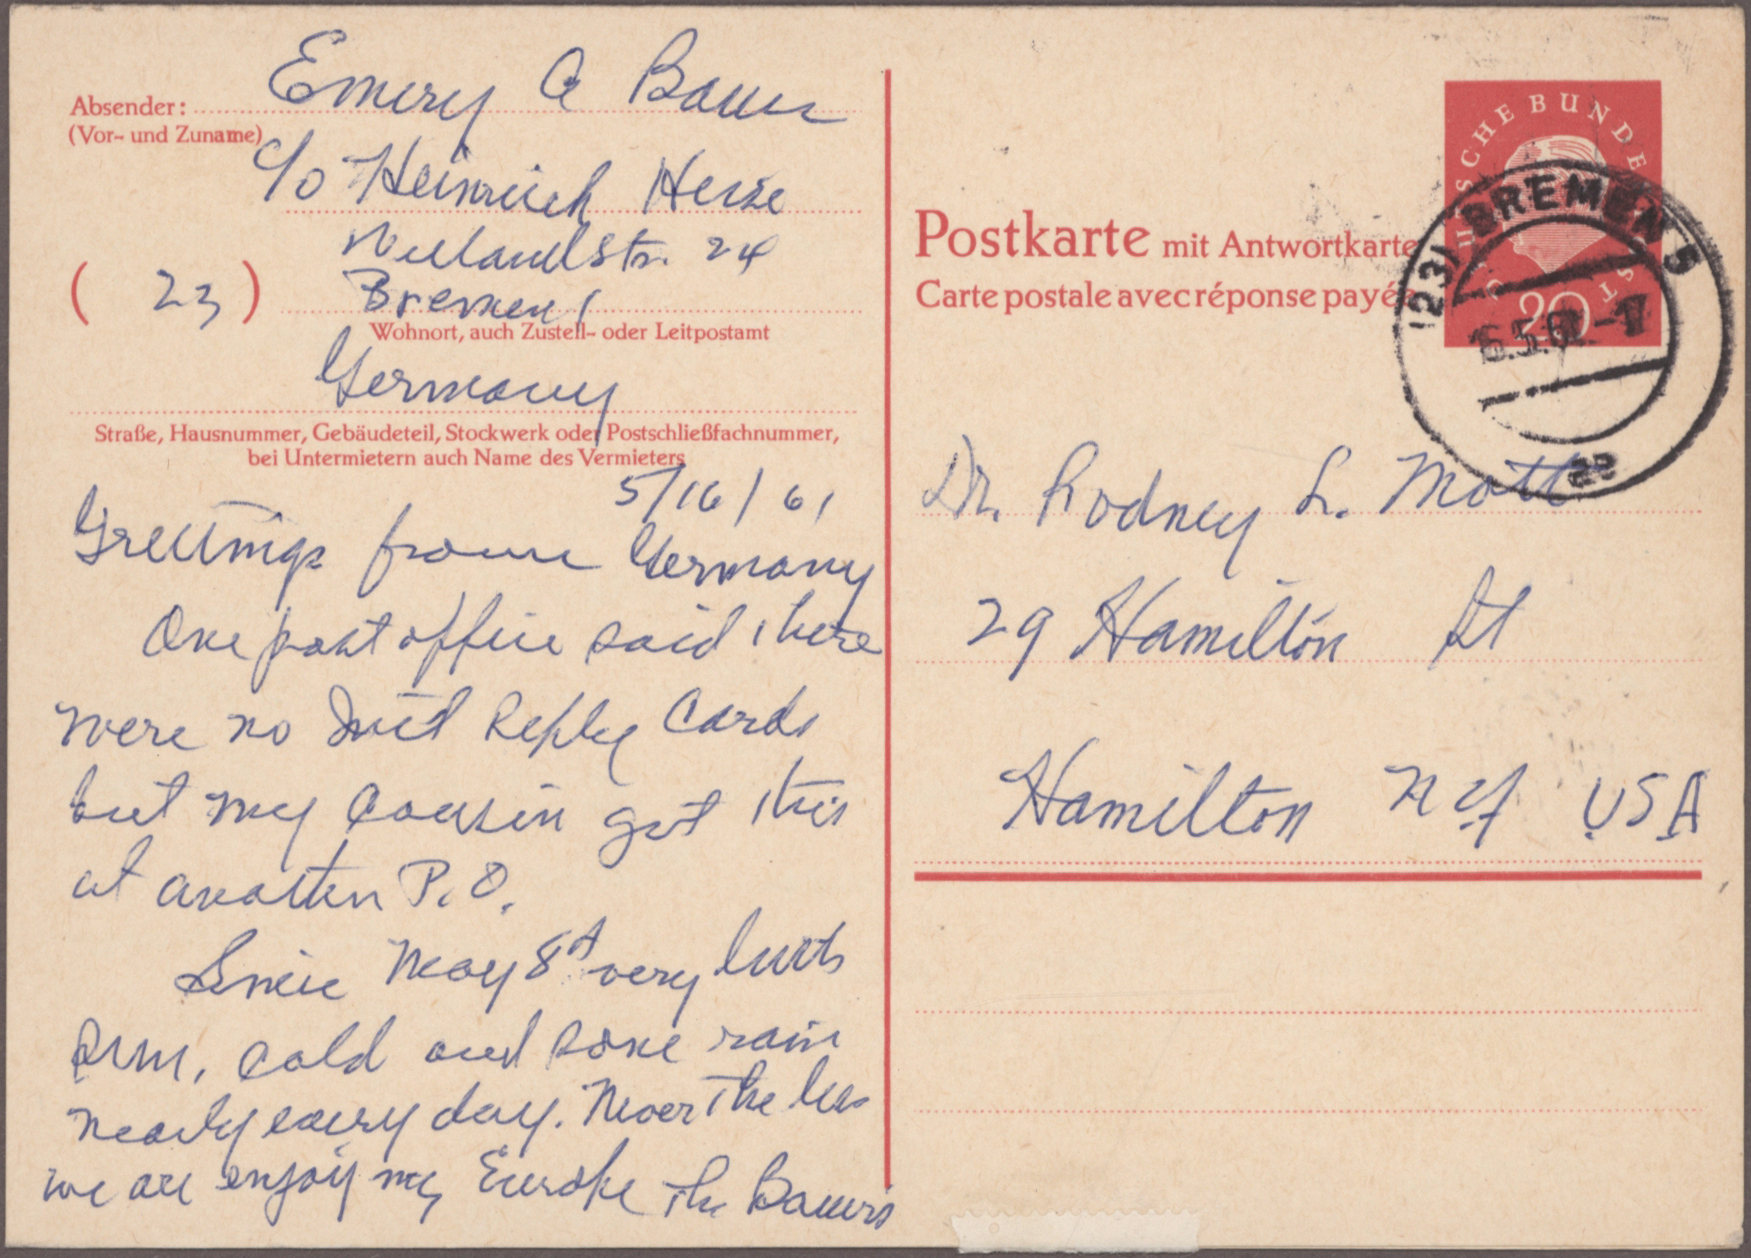 Absender: Emery A Bauer
(Vor- und Zuname)
c/o Heinrich Hesse
Wielandstr. 24
(23) Bremen 1
Wohnort, auch Zustell- oder Leitpostamt
Germany
Straße, Hausnummer, Gebäudeteil, Stockwerk oder Postschließfachnummer,
bei Untermietern auch Name des Vermieters
5/16/61
Greetings from Germany
One post office said there
were no Reply Cards
but my cousin got this
at another P.O.
Since May 8th very little
sun, cold and some rain
nearly every day. Never the less
we are enjoying Europe The Bauers
DEUTSCHE BUNDESPOST
20
(23) BREMEN 5
16.5.61.-17
aa
Postkarte mit Antwortkarte
Carte postale avec réponse payée
Dr. Rodney L. Mott
29 Hamilton St
Hamilton N Y USA